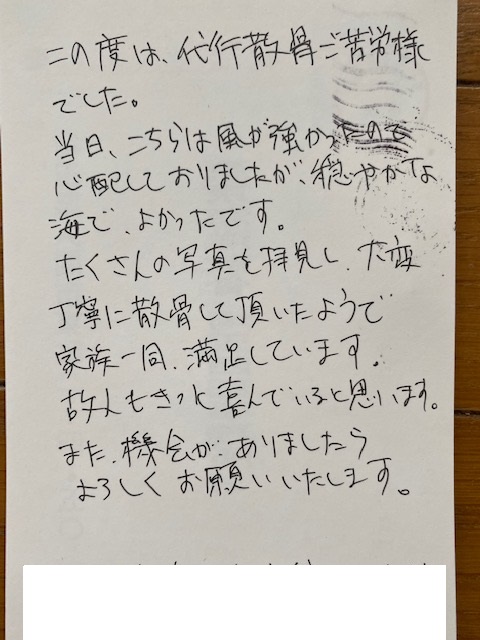 この度は、代行散骨ご苦労様
でした。
当日、こちらは風が強かったので
心配しておりましたが、穏やかな
海で、よかったです。
たくさんの写真を拝見し、大変
丁寧に散骨して頂いたようで
家族一同、満足しています。
故人もきっと喜んでいると思います。
また、機会が、ありましたら
よろしくお願いいたします。